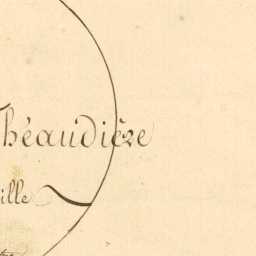 héaudière
ille